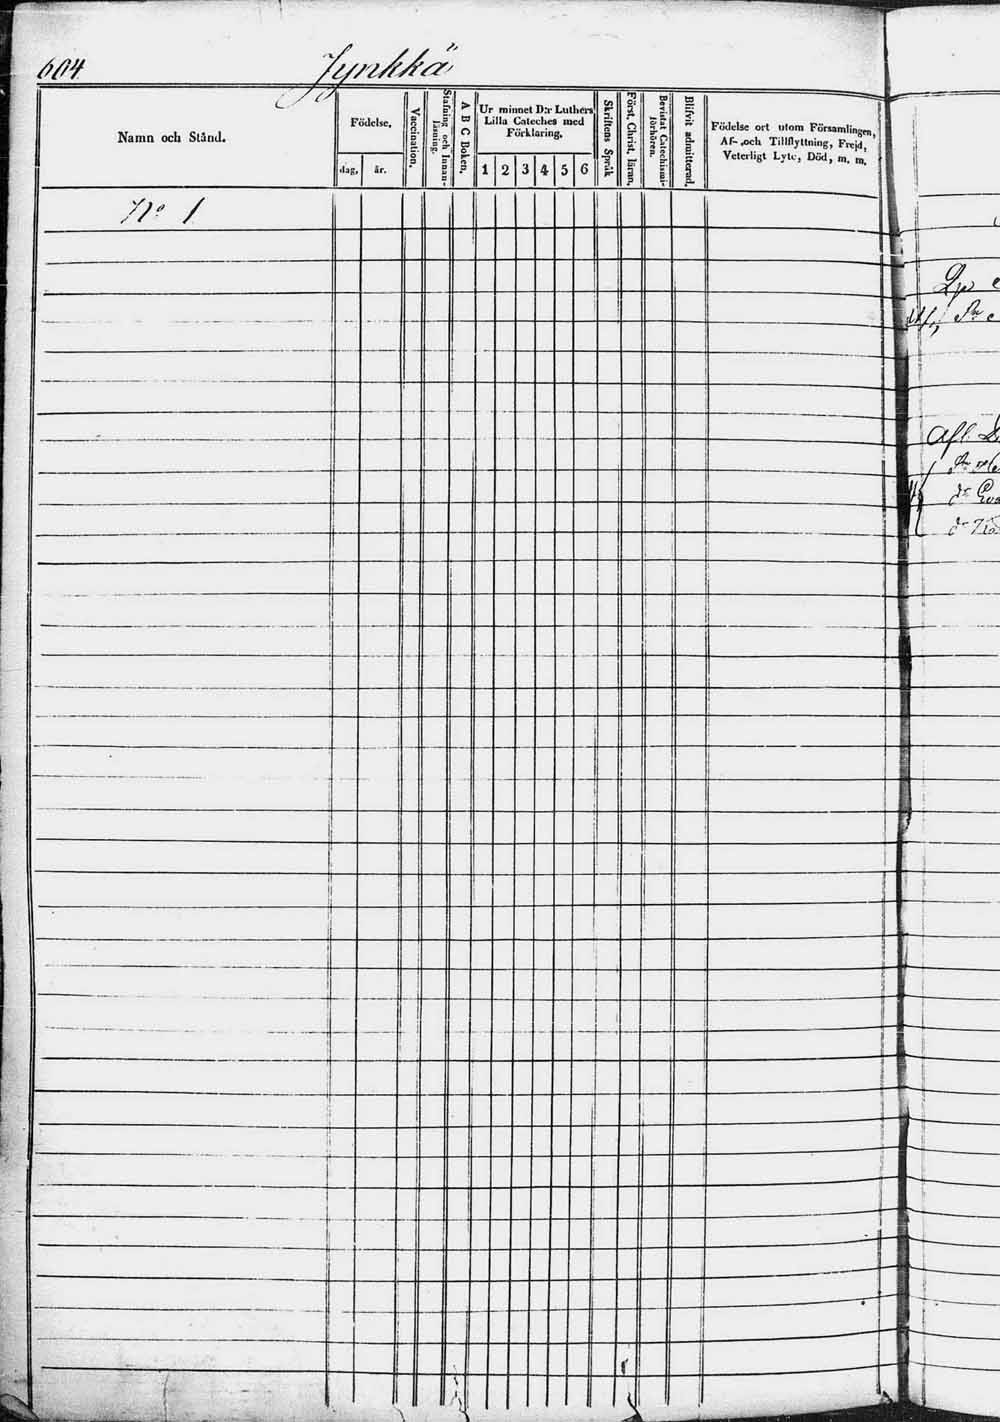 604 Jynkkä
Namn och Stånd.
Födelse,
dag, år.
Vaccination.
Stafning och Innanläsning.
A B C Boken.
Ur minnet D:r Luthers
Lilla Cateches med
Förklaring.
1 2 3 4 5 6
Skriftens Språk
Först. Christ. läran.
Bevistat Catechismiförhören.
Blifvit admitterad.
Födelse ort utom Församlingen,
Af- och Tillflyttning, Frejd,
Veterligt Lyte, Död, m. m.
No 1